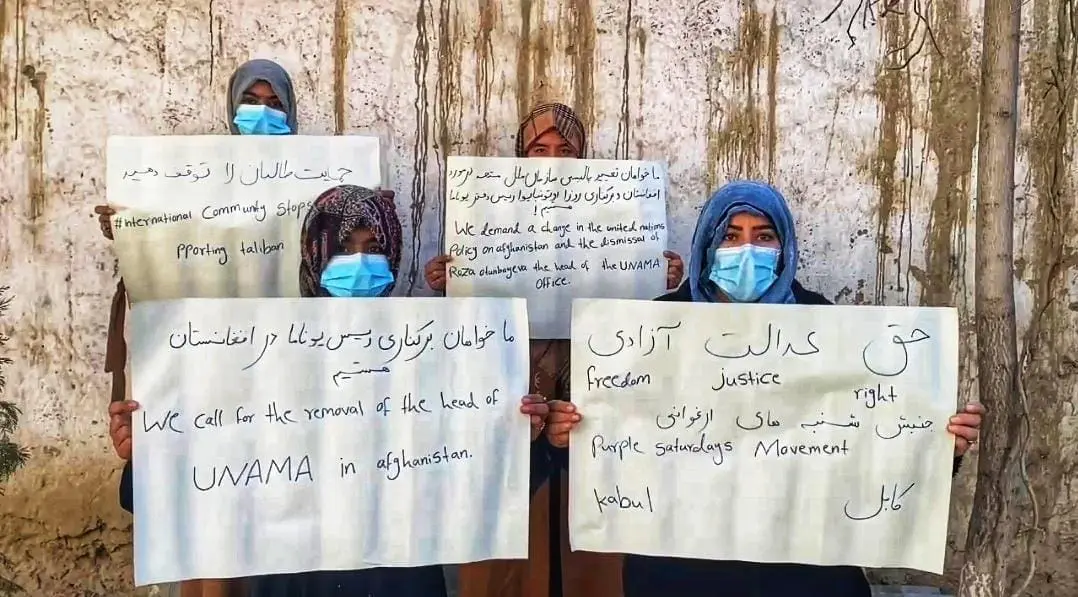 حمایت طالبان را توقف دهید
#International Community Stops
pporting taliban
ما خواهان تغییر پالیسی سازمان ملل متحد در مورد
افغانستان و برکناری روزا اوتونبایوا رییس دفتر یوناما
هستیم!
We demand a change in the united nations
Policy on afghanistan and the dismissal of
Roza otunbayeva the head of the UNAMA
Office.
ما خواهان برکناری رییس یوناما در افغانستان
هستیم
We call for the removal of the head of
UNAMA in afghanistan.
حق عدالت آزادی
freedom justice right
جنبش شنبه های ارغوانی
Purple Saturdays Movement
kabul کابل